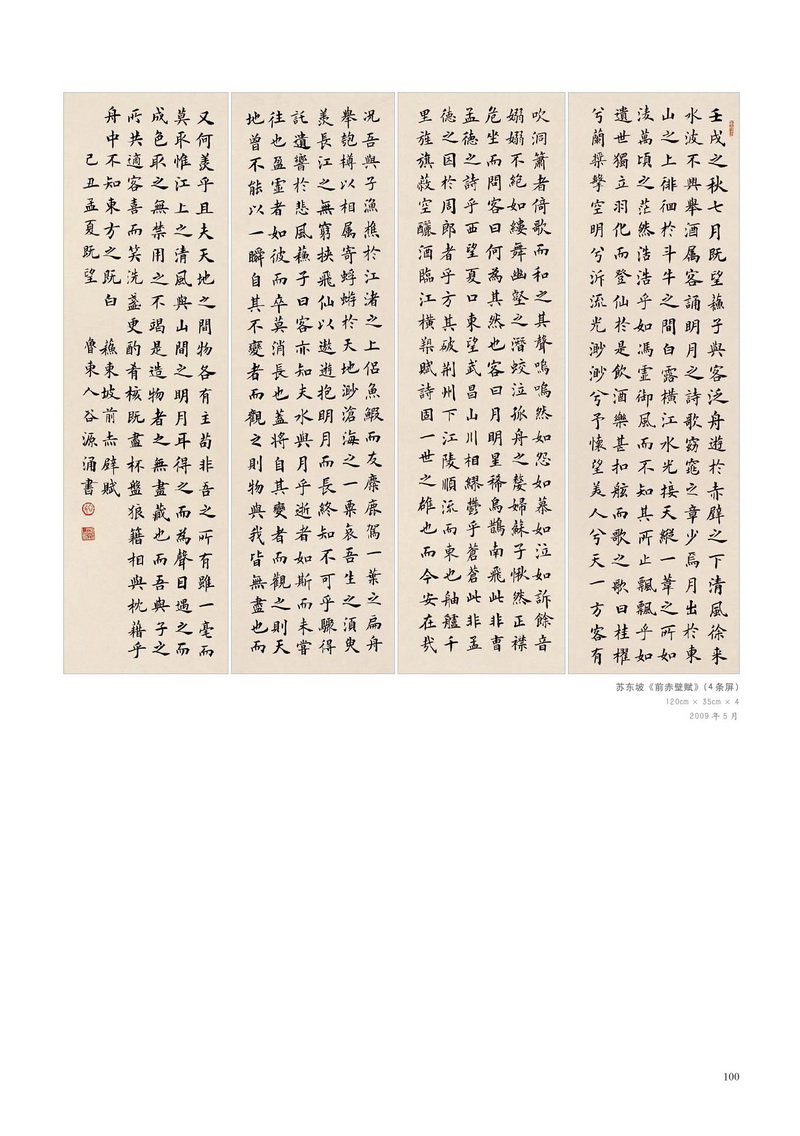 壬戌之秋七月既望蘇子與客泛舟遊於赤壁之下清風徐來
水波不興舉酒属客誦明月之詩歌窈窕之章少焉月出於東
山之上徘徊於斗牛之間白露橫江水光接天縱一葦之所如
淩萬頃之茫然浩浩乎如馮虛御風而不知其所止飄飄乎如
遺世獨立羽化而登仙於是飲酒樂甚扣舷而歌之歌曰桂櫂
兮蘭槳擊空明兮泝流光渺渺兮予懷望美人兮天一方客有
吹洞簫者倚歌而和之其聲嗚嗚然如怨如慕如泣如訴餘音
嫋嫋不絕如縷舞幽壑之潛蛟泣孤舟之嫠婦蘇子愀然正襟
危坐而問客曰何為其然也客曰月明星稀烏鵲南飛此非曹
孟德之詩乎西望夏口東望武昌山川相繆鬱乎蒼蒼此非孟
德之困於周郎者乎方其破荆州下江陵順流而東也舳艫千
里旌旗蔽空釃酒臨江橫槊賦詩固一世之雄也而今安在哉
況吾與子漁樵於江渚之上侶魚鰕而友麋鹿駕一葉之扁舟
舉匏樽以相属寄蜉蝣於天地渺滄海之一粟哀吾生之須臾
羨長江之無窮挾飛仙以遨遊抱明月而長終知不可乎驟得
託遺響於悲風蘇子曰客亦知夫水與月乎逝者如斯而未嘗
往也盈虛者如彼而卒莫消長也蓋將自其變者而觀之則天
地曾不能以一瞬自其不變者而觀之則物與我皆無盡也而
又何羨乎且夫天地之間物各有主苟非吾之所有雖一毫而
莫取惟江上之清風與山間之明月耳得之而為聲目遇之而
成色取之無禁用之不竭是造物者之無盡藏也而吾與子之
所共適客喜而笑洗盞更酌肴核既盡杯盤狼籍相與枕藉乎
舟中不知東方之既白 蘇東坡前赤壁賦
己丑孟夏既望 魯東人谷源涌書
苏东坡《前赤壁赋》（4条屏）
120cm × 35cm × 4
2009年5月
100